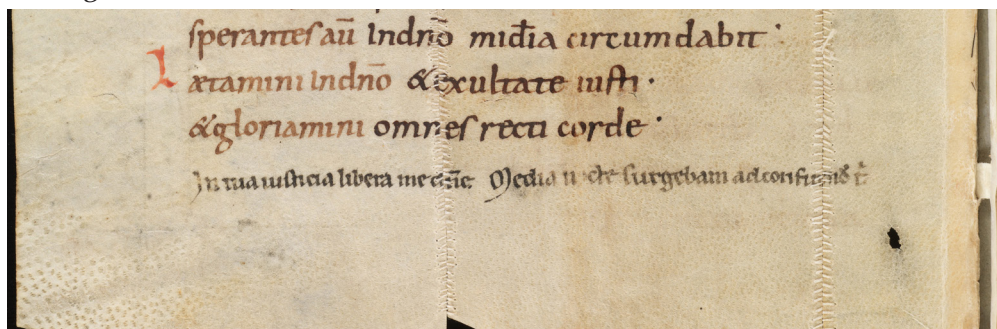 sperantes aū Indnō mīdia circumdabit ·
Lætamini Indnō & exultate iusti ·
& gloriamini omnes recti corde ·
In tua iusticia libera me dñe Media nocte surgebam ad confitend̄ t̄